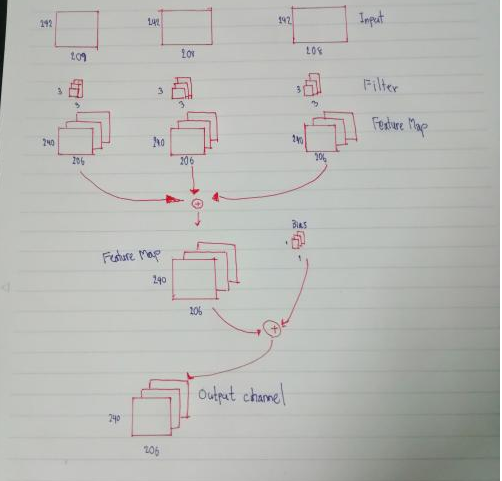 242 242 242 Input
209 208 208
3 3 3 Filter
3 3 3
240 240 240 Feature Map
206 206 206
+
Bias
Feature Map 1
240 1
206
+
Output channel
240
206